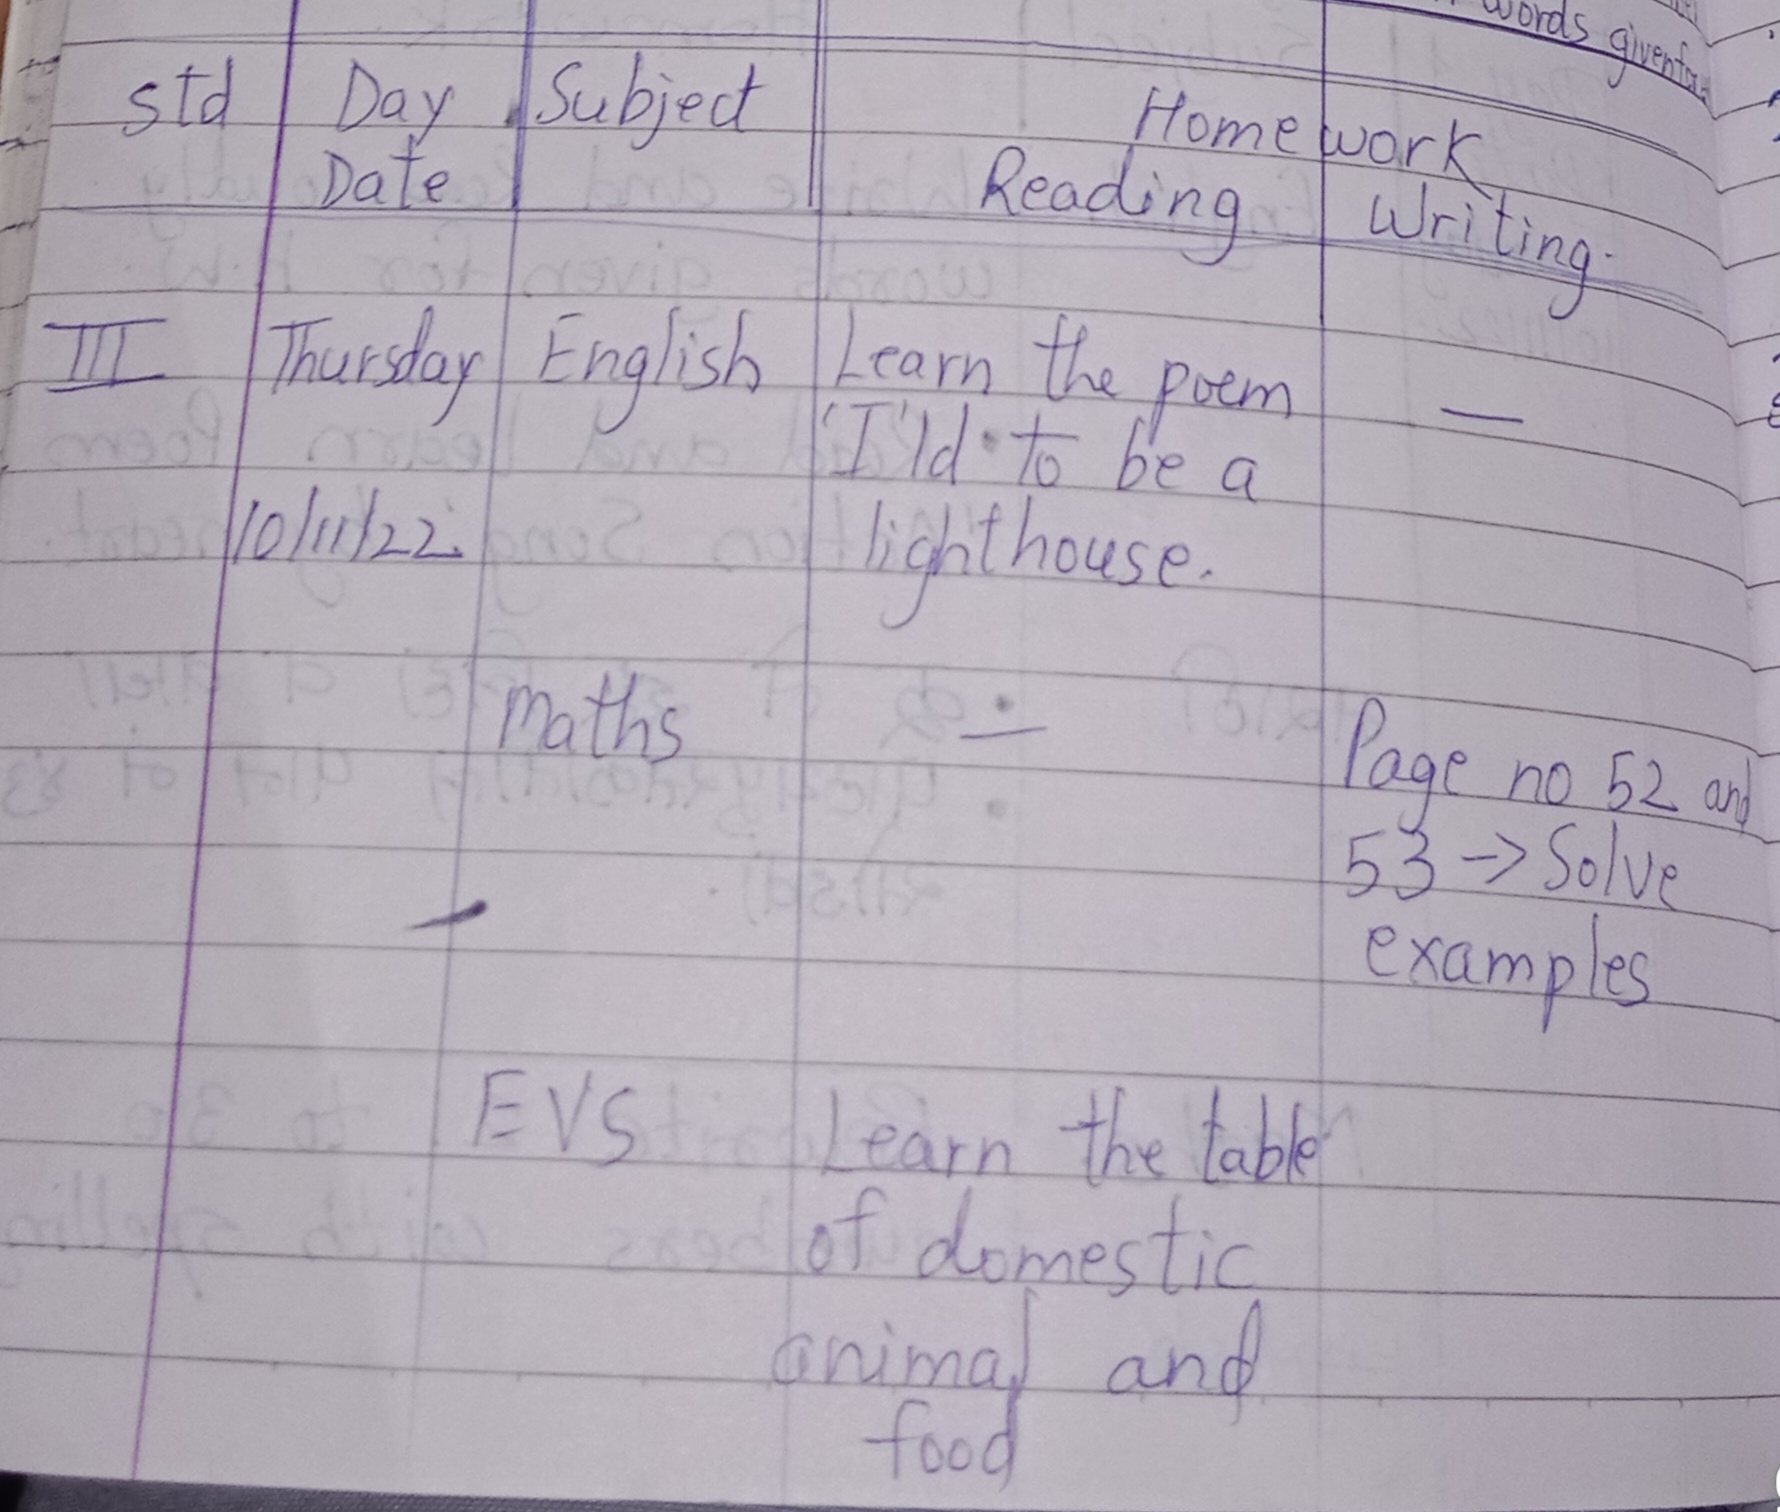 words given for
std Day Subject Homework
Date Reading Writing.
III Thursday English Learn the poem —
'I'ld to be a
10/11/22. lighthouse.
Maths — Page no 52 and
53 → Solve
examples
EVS Learn the table
of domestic
animal and
food